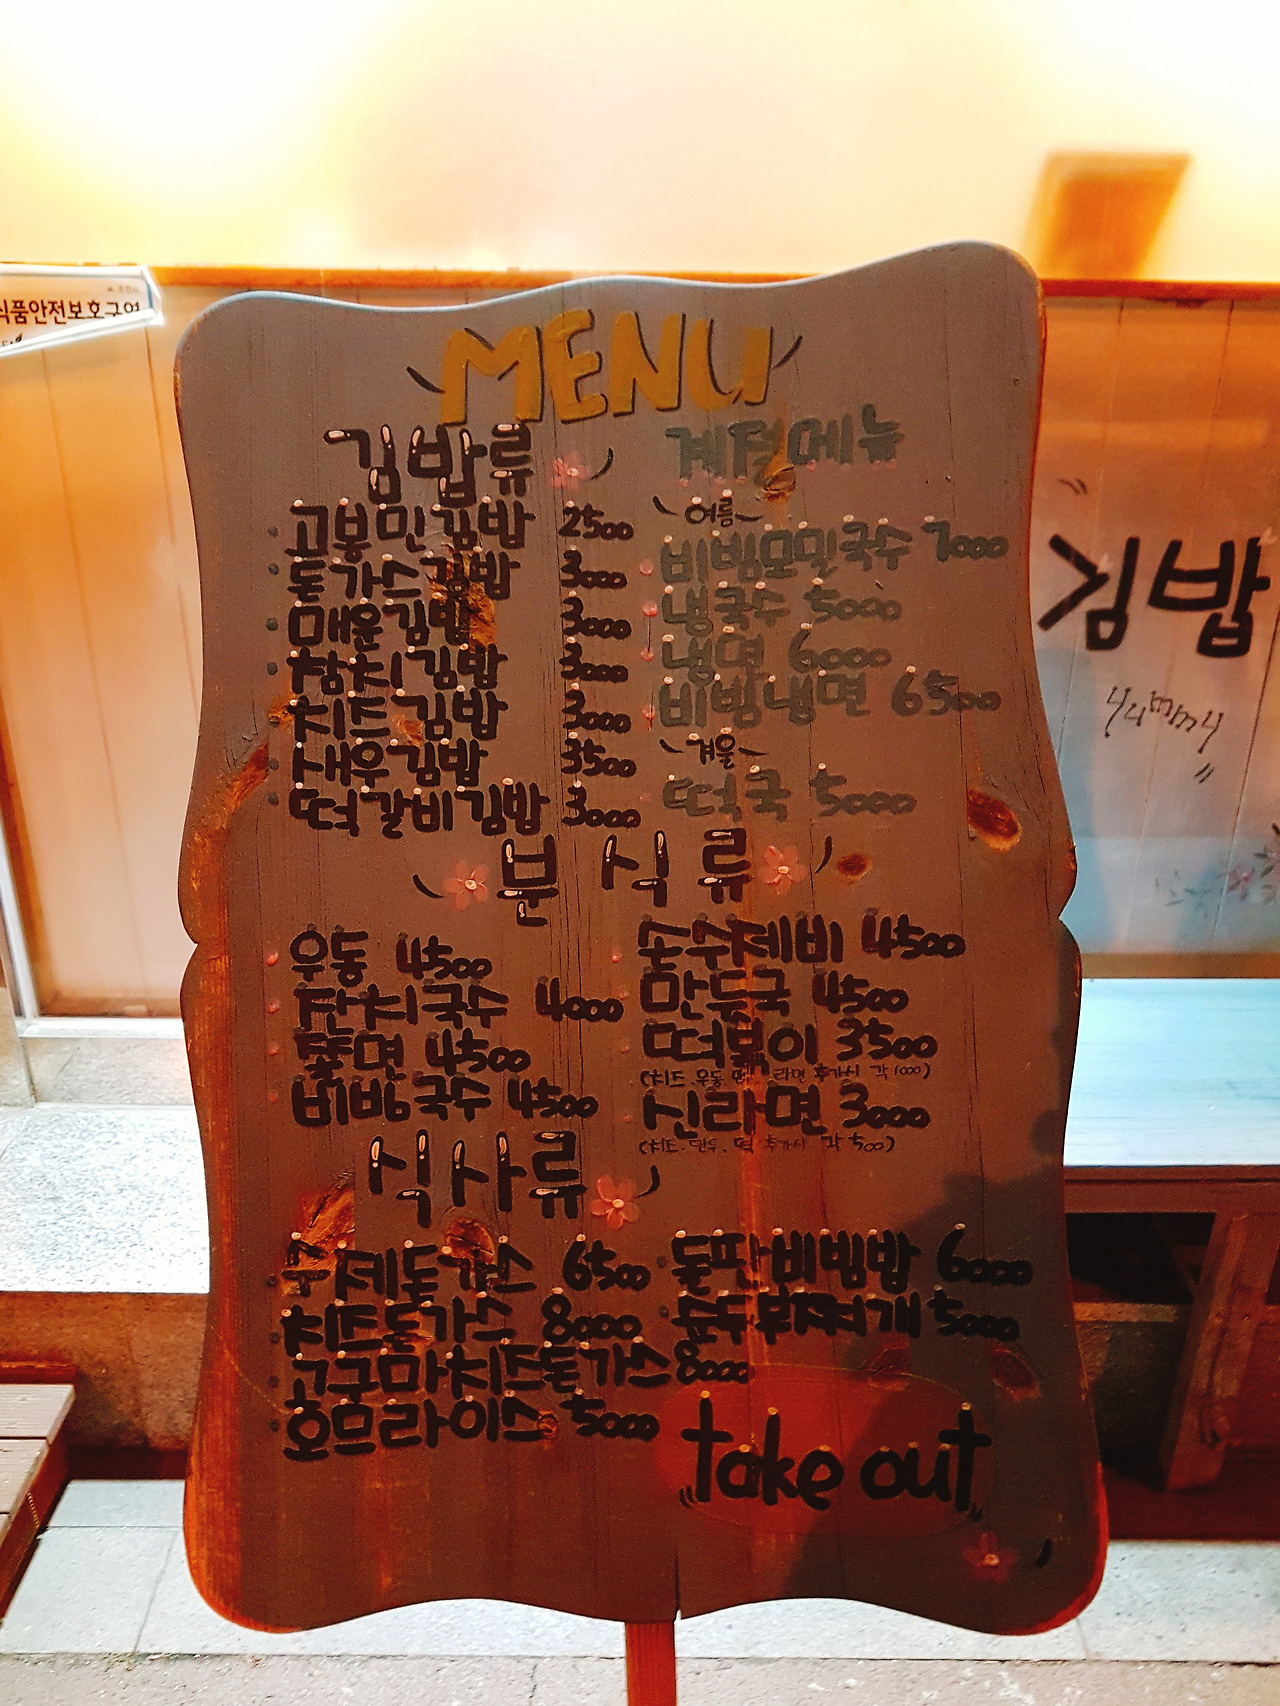 식품안전보호구역
MENU
김밥류
고봉민김밥 2500
돈가스김밥 3000
매운김밥 3000
참치김밥 3000
치즈김밥 3000
새우김밥 3500
떡갈비김밥 3000
계절메뉴
여름
비빔모밀국수 7000
냉국수 5000
냉면 6000
비빔냉면 6500
겨울
떡국 5000
분식류
우동 4500
잔치국수 4000
쫄면 4500
비빔국수 4500
손수제비 4500
만두국 4500
떡볶이 3500
(치즈.우동 라면 추가시 각 1000)
신라면 3000
(치즈.만두.떡 추가시 각 500)
식사류
수제돈가스 6500
치즈돈가스 8000
고구마치즈돈가스 8000
오므라이스 5000
돌판비빔밥 6000
순두부찌개 5000
take out
김밥
yummy